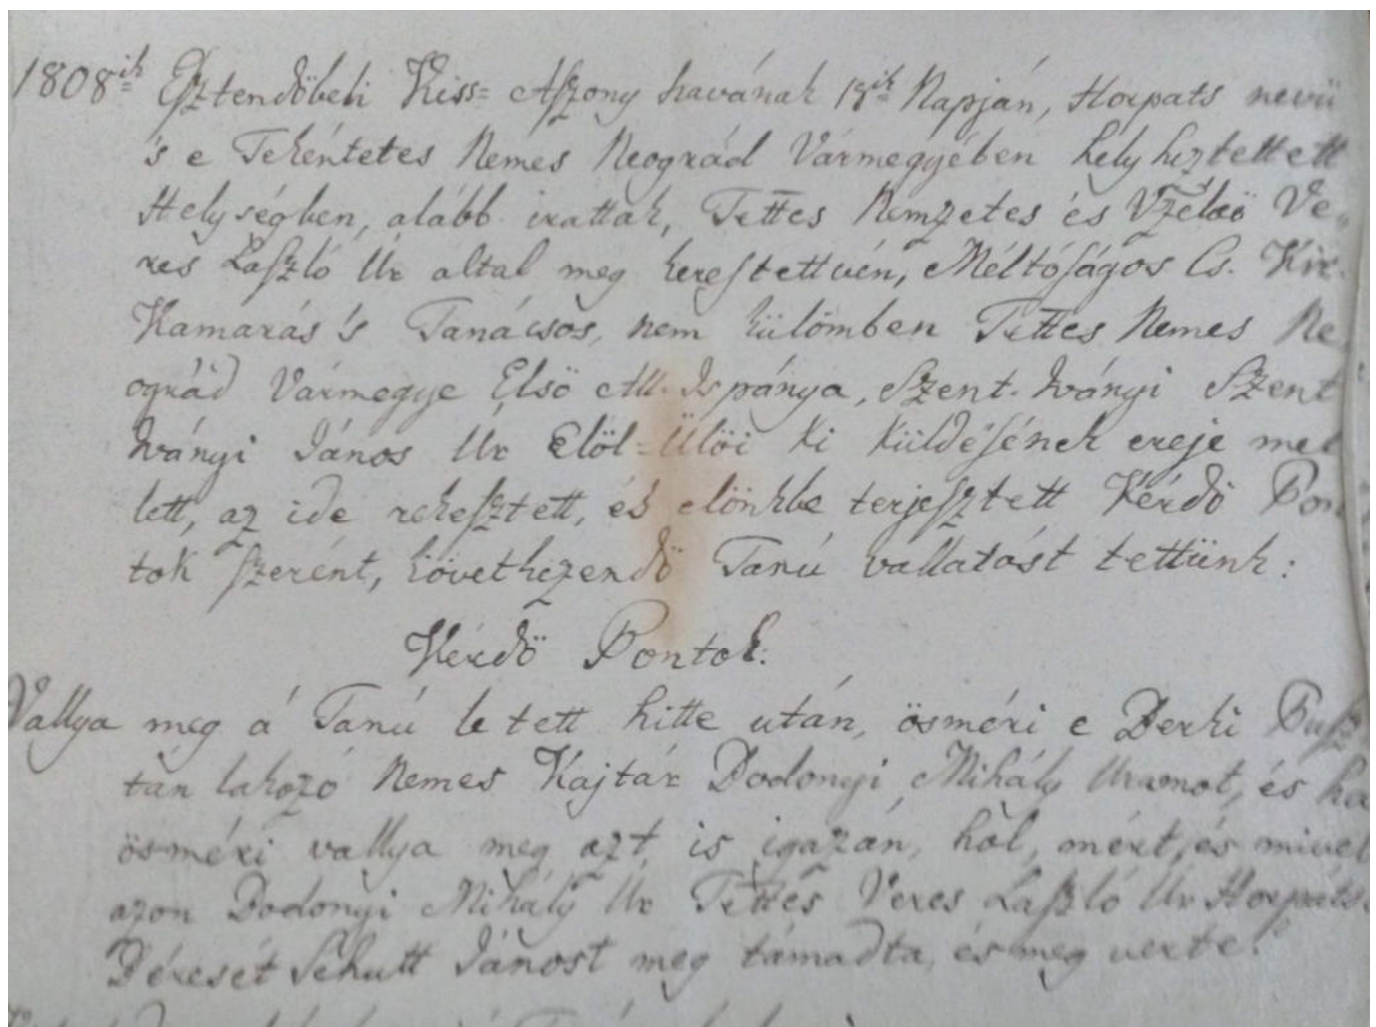 1808ik Esztendőbeli Kiss=Aszony havának 18ik Napján, Horpats nevű
's e Tekéntetes Nemes Neográd Vármegyében helyheztetett
Helységben, alább irattak, Tettes Nemzetes és Vzélő Ve=
res László Ur által meg kerestettvén, Méltóságos Cs. Kir.
Kamarás 's Tanácsos, nem külömben Tettes Nemes Ne
ográd Vármegye Első All-Ispánya, Szent-Iványi Szent
Iványi János Ur Elöl=Ülői ki küldésének ereje mel
lett, az ide rekesztett, és előnkbe terjesztett Kérdő Pon
tok szerént, következendő Tanú vallatást tettünk:
Kérdő Pontok:
Vallya meg á Tanú letett hitte után, ösméri e Derki Pusz
tán lakozó Nemes Kajtár Dodonyi Mihály Uramot, és ha
ösméri vallya meg azt is igazán, hól, mért, és mivel
azon Dodonyi Mihály Ur Tettes Veres László Ur Horpáts
Béresét Schutt Jánost meg támadta, és meg verte?